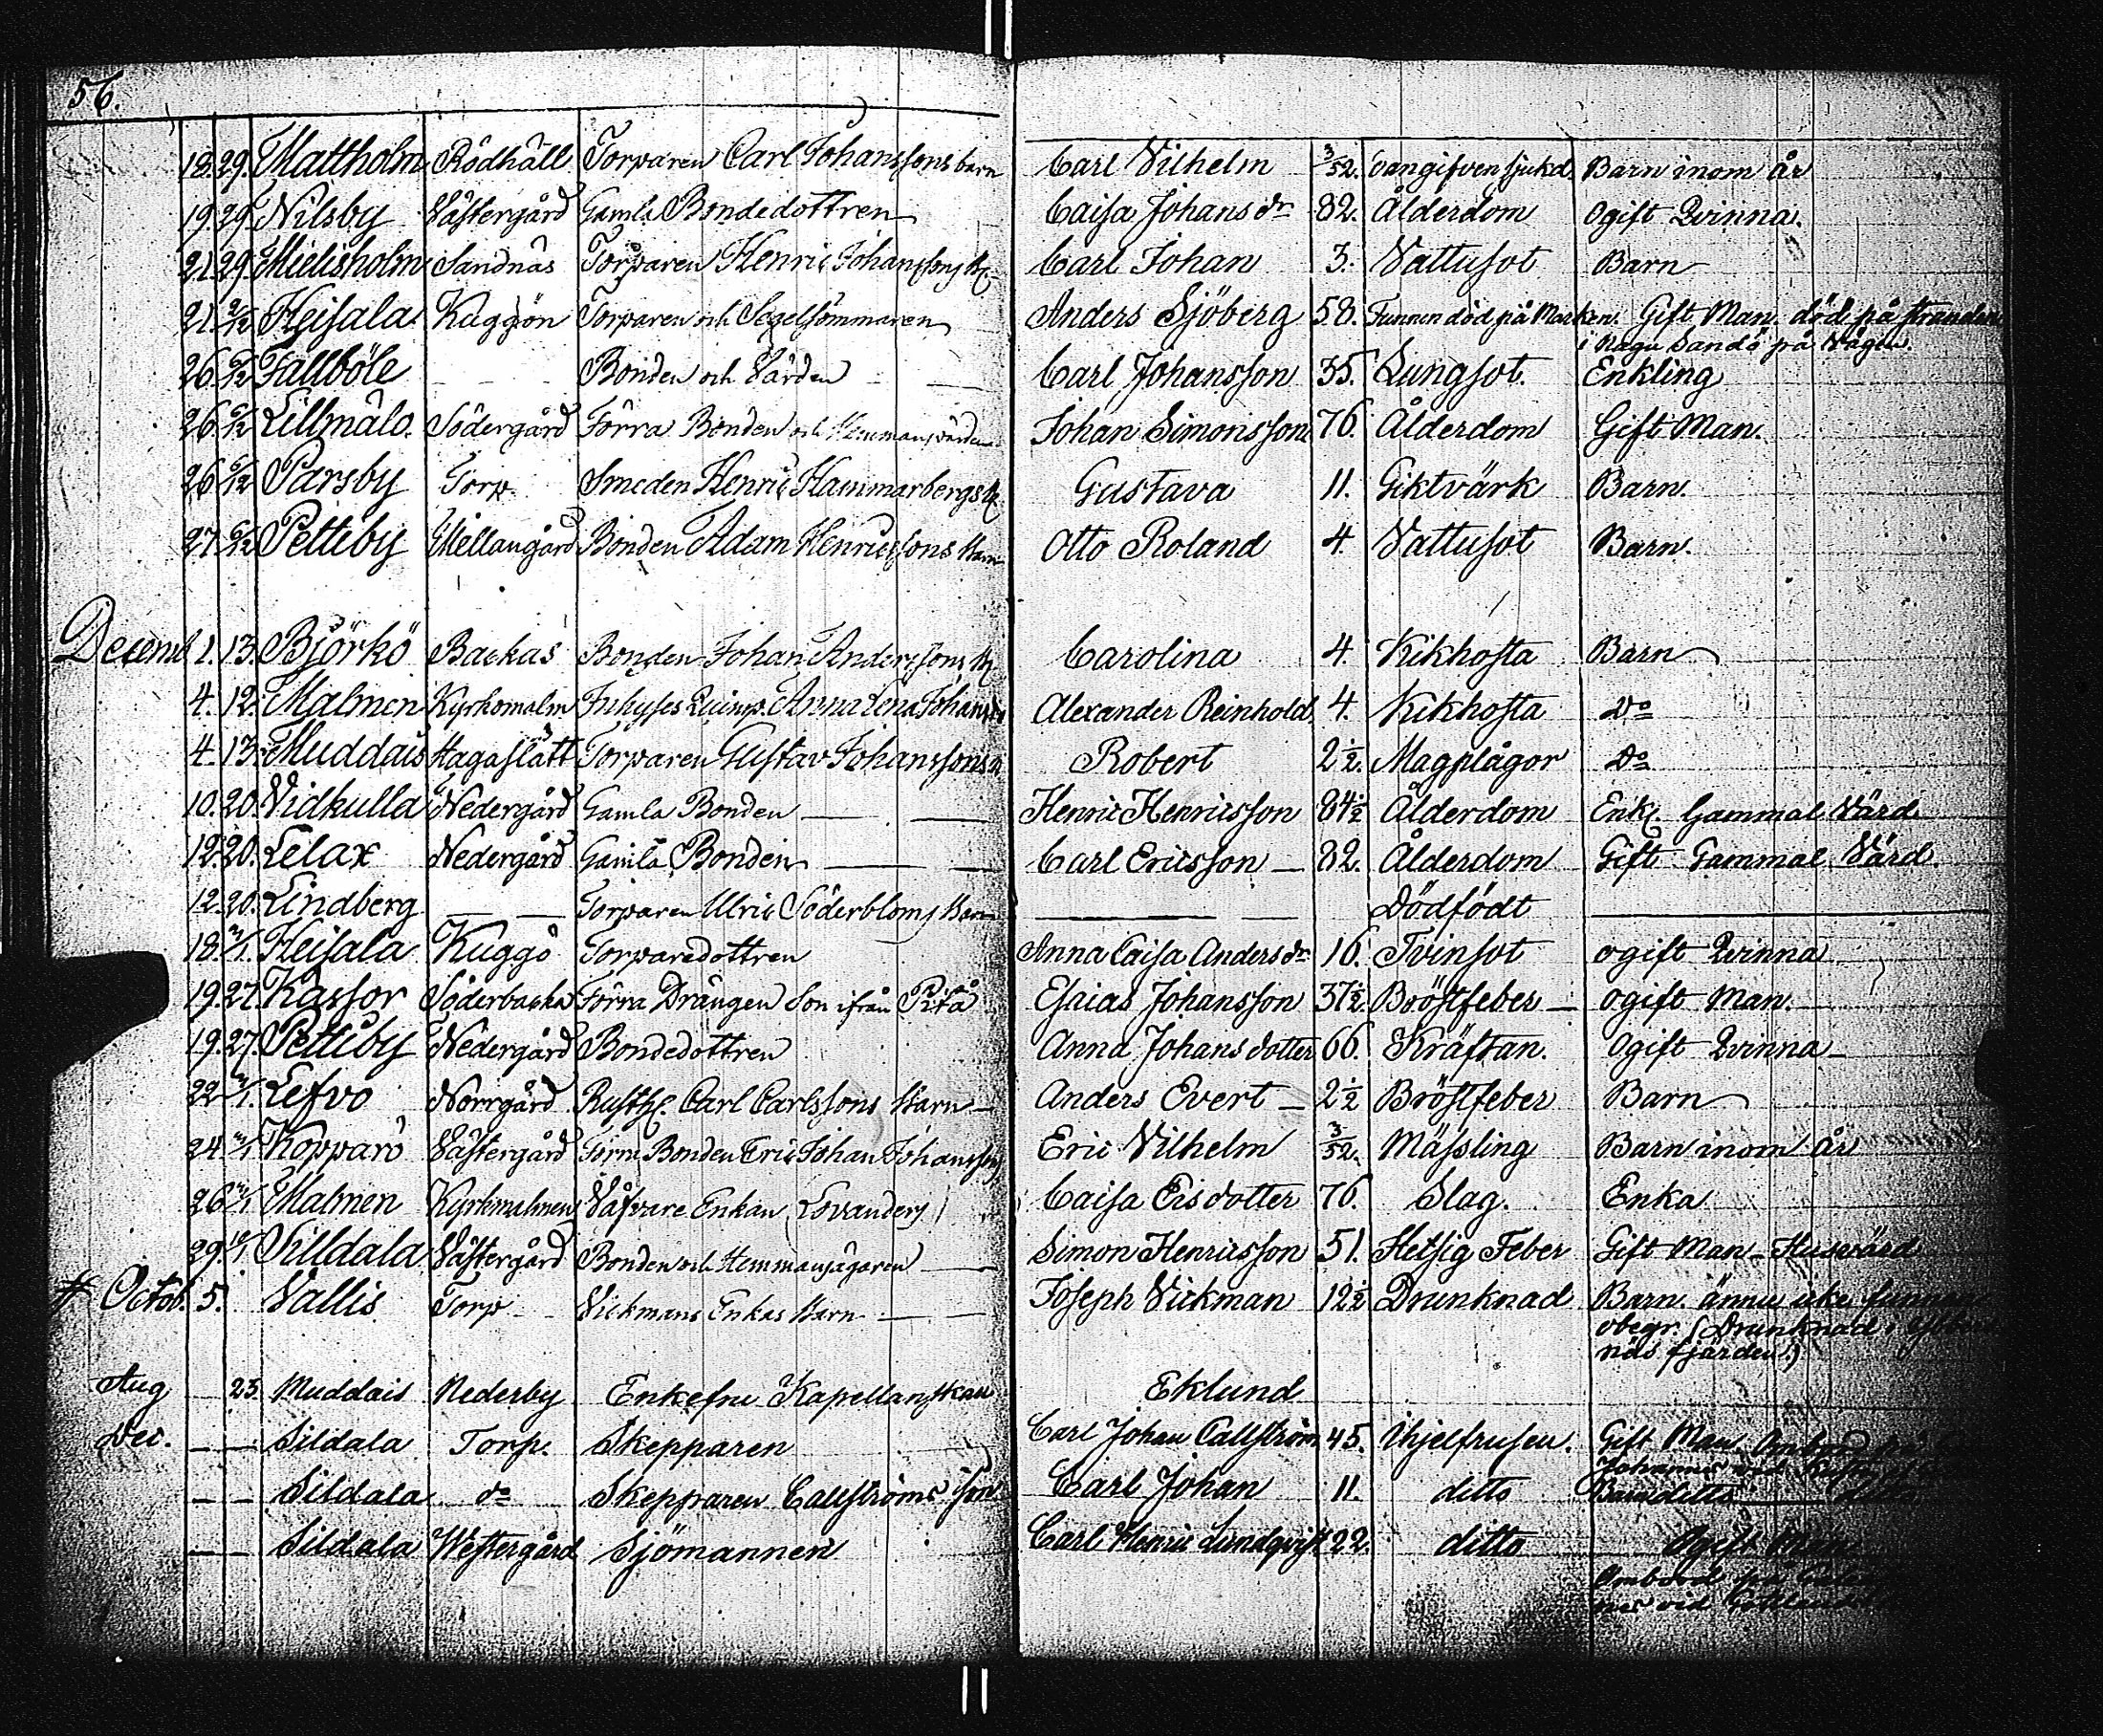 56.
18. 29. Mattholm Rödhäll Torparen Carl Johanssons barn Carl Vilhelm 3/52. oangifven sjukd. Barn inom år
19. 29. Nilsby Västergård Gamla Bondedottren Caisa Johansdr 82. Ålderdom Ogift Qvinna.
21. 29. Mielisholm Sandnäs Torparen Henric Johanssons Carl Johan 3. Vattusot Barn
21. Heisala Kuggön Torparen och Segelsömmaren Anders Sjöberg 58. Funnen död på Marken. Gift Man, död på stranden
i Nagu Sandö på
26. 6/12 Fallböle Bonden och Värden Carl Johansson 35. Lungsot. Enkling
26. 6/12 Lillmälo. Södergård Förra Bonden och Hemmansvärden Johan Simonsson 76. Ålderdom Gift Man.
26. 6/12 Parsby Torp Smeden Henric Hammarbergs Gustava 11. Giktvärk Barn.
27. 6/12 Petteby Mellangård Bonden Adam Henricssons Barn Otto Roland 4. Vattusot Barn.
Decemb. 1. 13. Björkö Backas Bonden Johan Anderssons Carolina 4. Kikhosta Barn
4. 12. Malmen Kyrkomalm Inhyses Qvinnp. Anna Lena Johans Alexander Reinhold 4. Kikhosta Do
4. 13. Muddais Hagaslätt Torparen Gustav Johanssons Robert 2 1/2. Magplågor Do
10. 20. Vidkulla Nedergård Gamla Bonden Henric Henricsson 84 1/2 Ålderdom Enkl. Gammal Värd
12. 20. Lelax Nedergård Gamla Bonden Carl Ericsson 82. Ålderdom Gift Gammal Värd
12. 20. Lindberg Torparen Ulric Söderbloms Barn Dödfödt
18. Heisala Kuggö Torparedottren Anna Caisa Andersdr 16. Tvinsot ogift Qvinna
19. 27. Kassor Söderbacka Förra Drängen Son ifrån Piså Esaias Johansson 37 1/2 Bröstfeber ogift Man.
19. 27. Petteby Nedergård Bondedottren Anna Johansdotter 66. Kräftan. Ogift Qvinna
22 Lefvo Norrgård Rusth. Carl Carlssons Barn Anders Evert 2 1/2 Bröstfeber Barn
24 Kopparö Västergård Bonden Eric Johan Johanssons Eric Vilhelm 3/52. Mässling Barn inom år
26 Malmen Kyrkmalmen Enkan Lovanders Caisa Ersdotter 76. Slag. Enka
29. Silldala Västergård Bonden och Hemmansägaren Simon Henricsson 51. Hetsig Feber Gift Man Husvärd
# Octob. 5. Vallis Torp Vickmans Enkas Barn Joseph Vickman 12 1/2 Drunknad Barn. ännu icke funnen
obegr. (Drunknad i
näs fjärden.)
Aug 23. Muddais Nederby Enkefru Kapellanskan Eklund
Dec. Sildala Torp. Skepparen Carl Johan Callström 45. Ihjelfrusen. Gift Man. Ombord på
Johannes vid
Sildala do Skepparen Callströms son Carl Johan 11. ditto Barn ditto
Sildala Westergård Sjömannen Carl Henric Lundqvist 22. ditto Ogift Man
Ombord på
vid Gottland